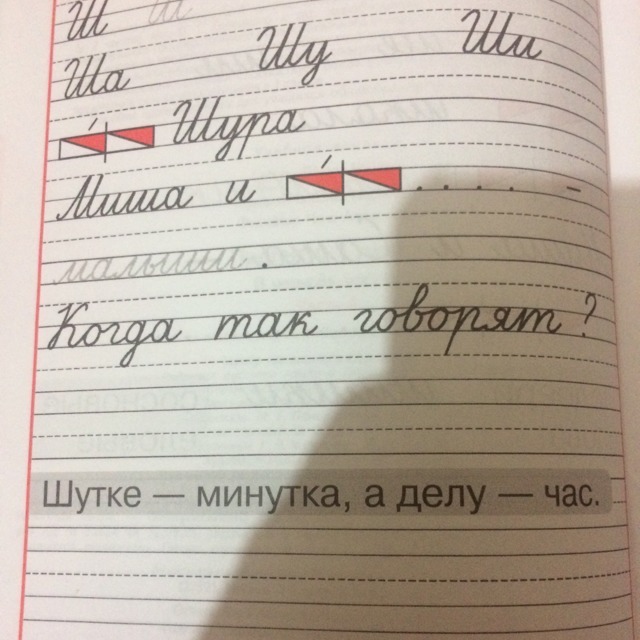 Ш Ш
Ша Шу Ши
Шура
Миша и . . . . . –
малыши.
Когда так говорят?
Шутке — минутка, а делу — час.